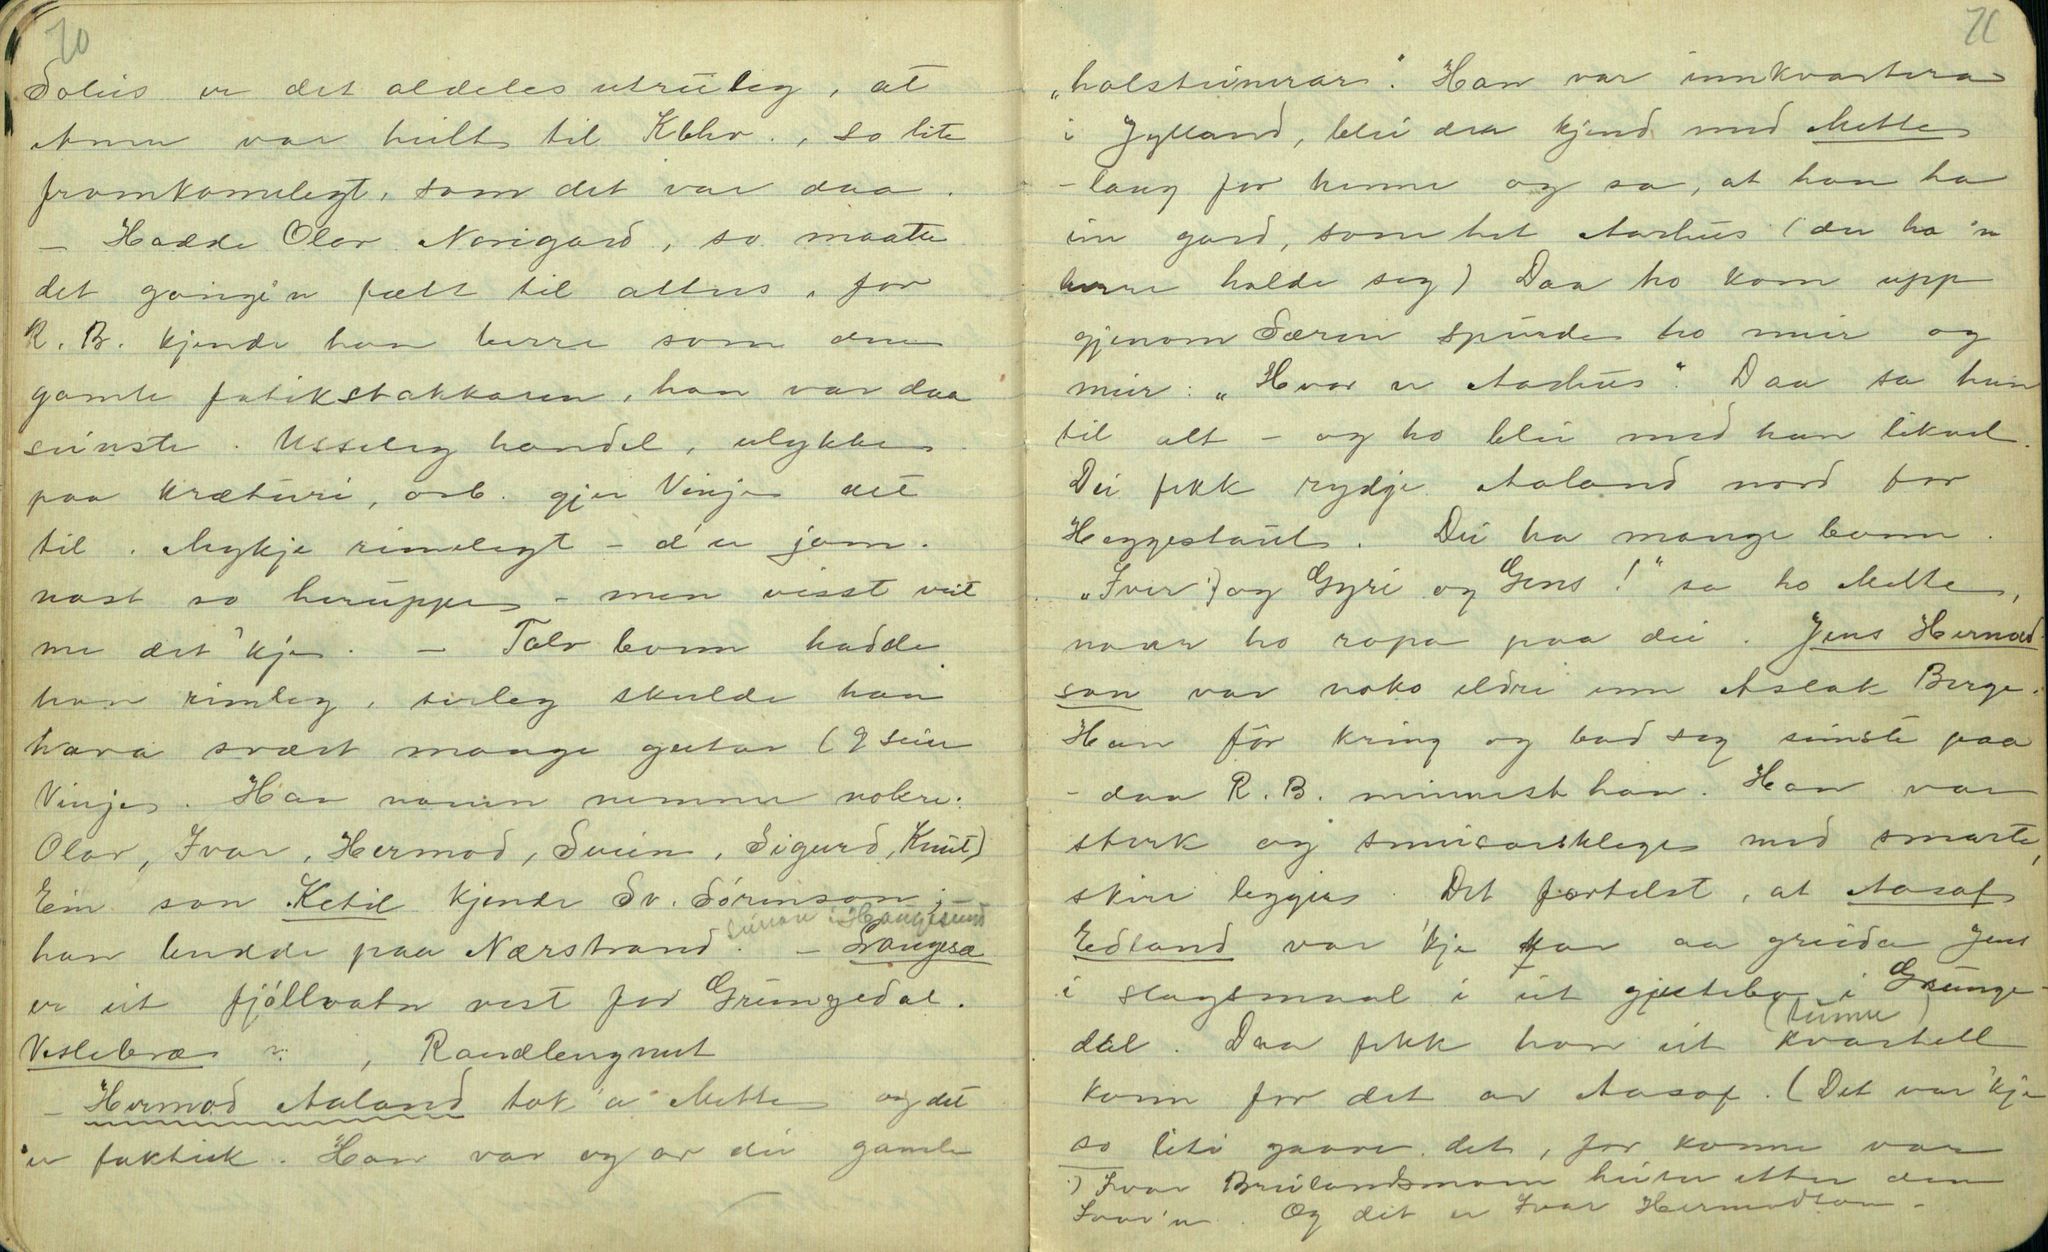 70
Soleis er det aldeles utruleg, at
Anne var heilt til Kbhv., so lite
framkomelegt, som det var daa.
— Hadde Olav Norigard, so maatte
det gangi'n fætt til attus, for
R. B. kjende han berre som den
gamle fatikstakkaren, han var daa
seinste. Usseleg handel, ulykke
paa kræturi, osb. gjer Vinje det
til. Mykje rimelegt - d'er jam-
nast so heruppe - men visst veit
me det 'kje. — Tolv bonn hadde
han rimleg, serleg skulde han
hava svært mange gutar (9 seier
Vinje. Han noren nemner nokre:
Olav, Ivar, Hermod, Svein, Sigurd, Knut)
Ein son Ketil kjende Sv. Sórenson;
seinare i Haugesund
han budde paa Nærstrand. — Langesæ
er eit fjöllvatn vest for Grungedal.
Veslebræ " , Randlengmet.
— Hermod Aaland tok 'a Mette og det
'er faktisk. Han var og av dei gamle
71
„holsteinerar". Han var innkvartera
i Jylland, blei daa kjend med Mette
- laug for henne og sa, at han ha
ein gard, som het Aarhus (der ha 'n
berre halde seg) Daa ho kom upp
gjenom Særen spurde ho meir og
meir: „Hvor er Aarhus". Daa sa han
til alt - og ho blei med han likavel.
Dei fekk rydje Aaland nord for
Heggestaul. Dei ha mange bonn.
„Iver ¹) og Gyri og Gens!" sa ho Mette,
naar ho ropa paa dei. Jens Hermod-
son var noko eldre enn Aslak Berge.
Han fór kring og bad seg seinste paa
- daa R. B. minnest han. Han var
sterk og smeisarsklege med smarte,
skire leggjer. Det fortelst, at Aasof
Edland var 'kje kar aa greida Jens
i slagsmaal i eit gjestebo i Grunge-
(tunne)
dal. Daa fekk han eit kvartell
korn for det av Aasof. (Det var 'kje
so liti gaave det, for konne var
¹) Ivar Breilandsmoen heiter etter den
Ivar'n. Og det er Ivar Hermodson.